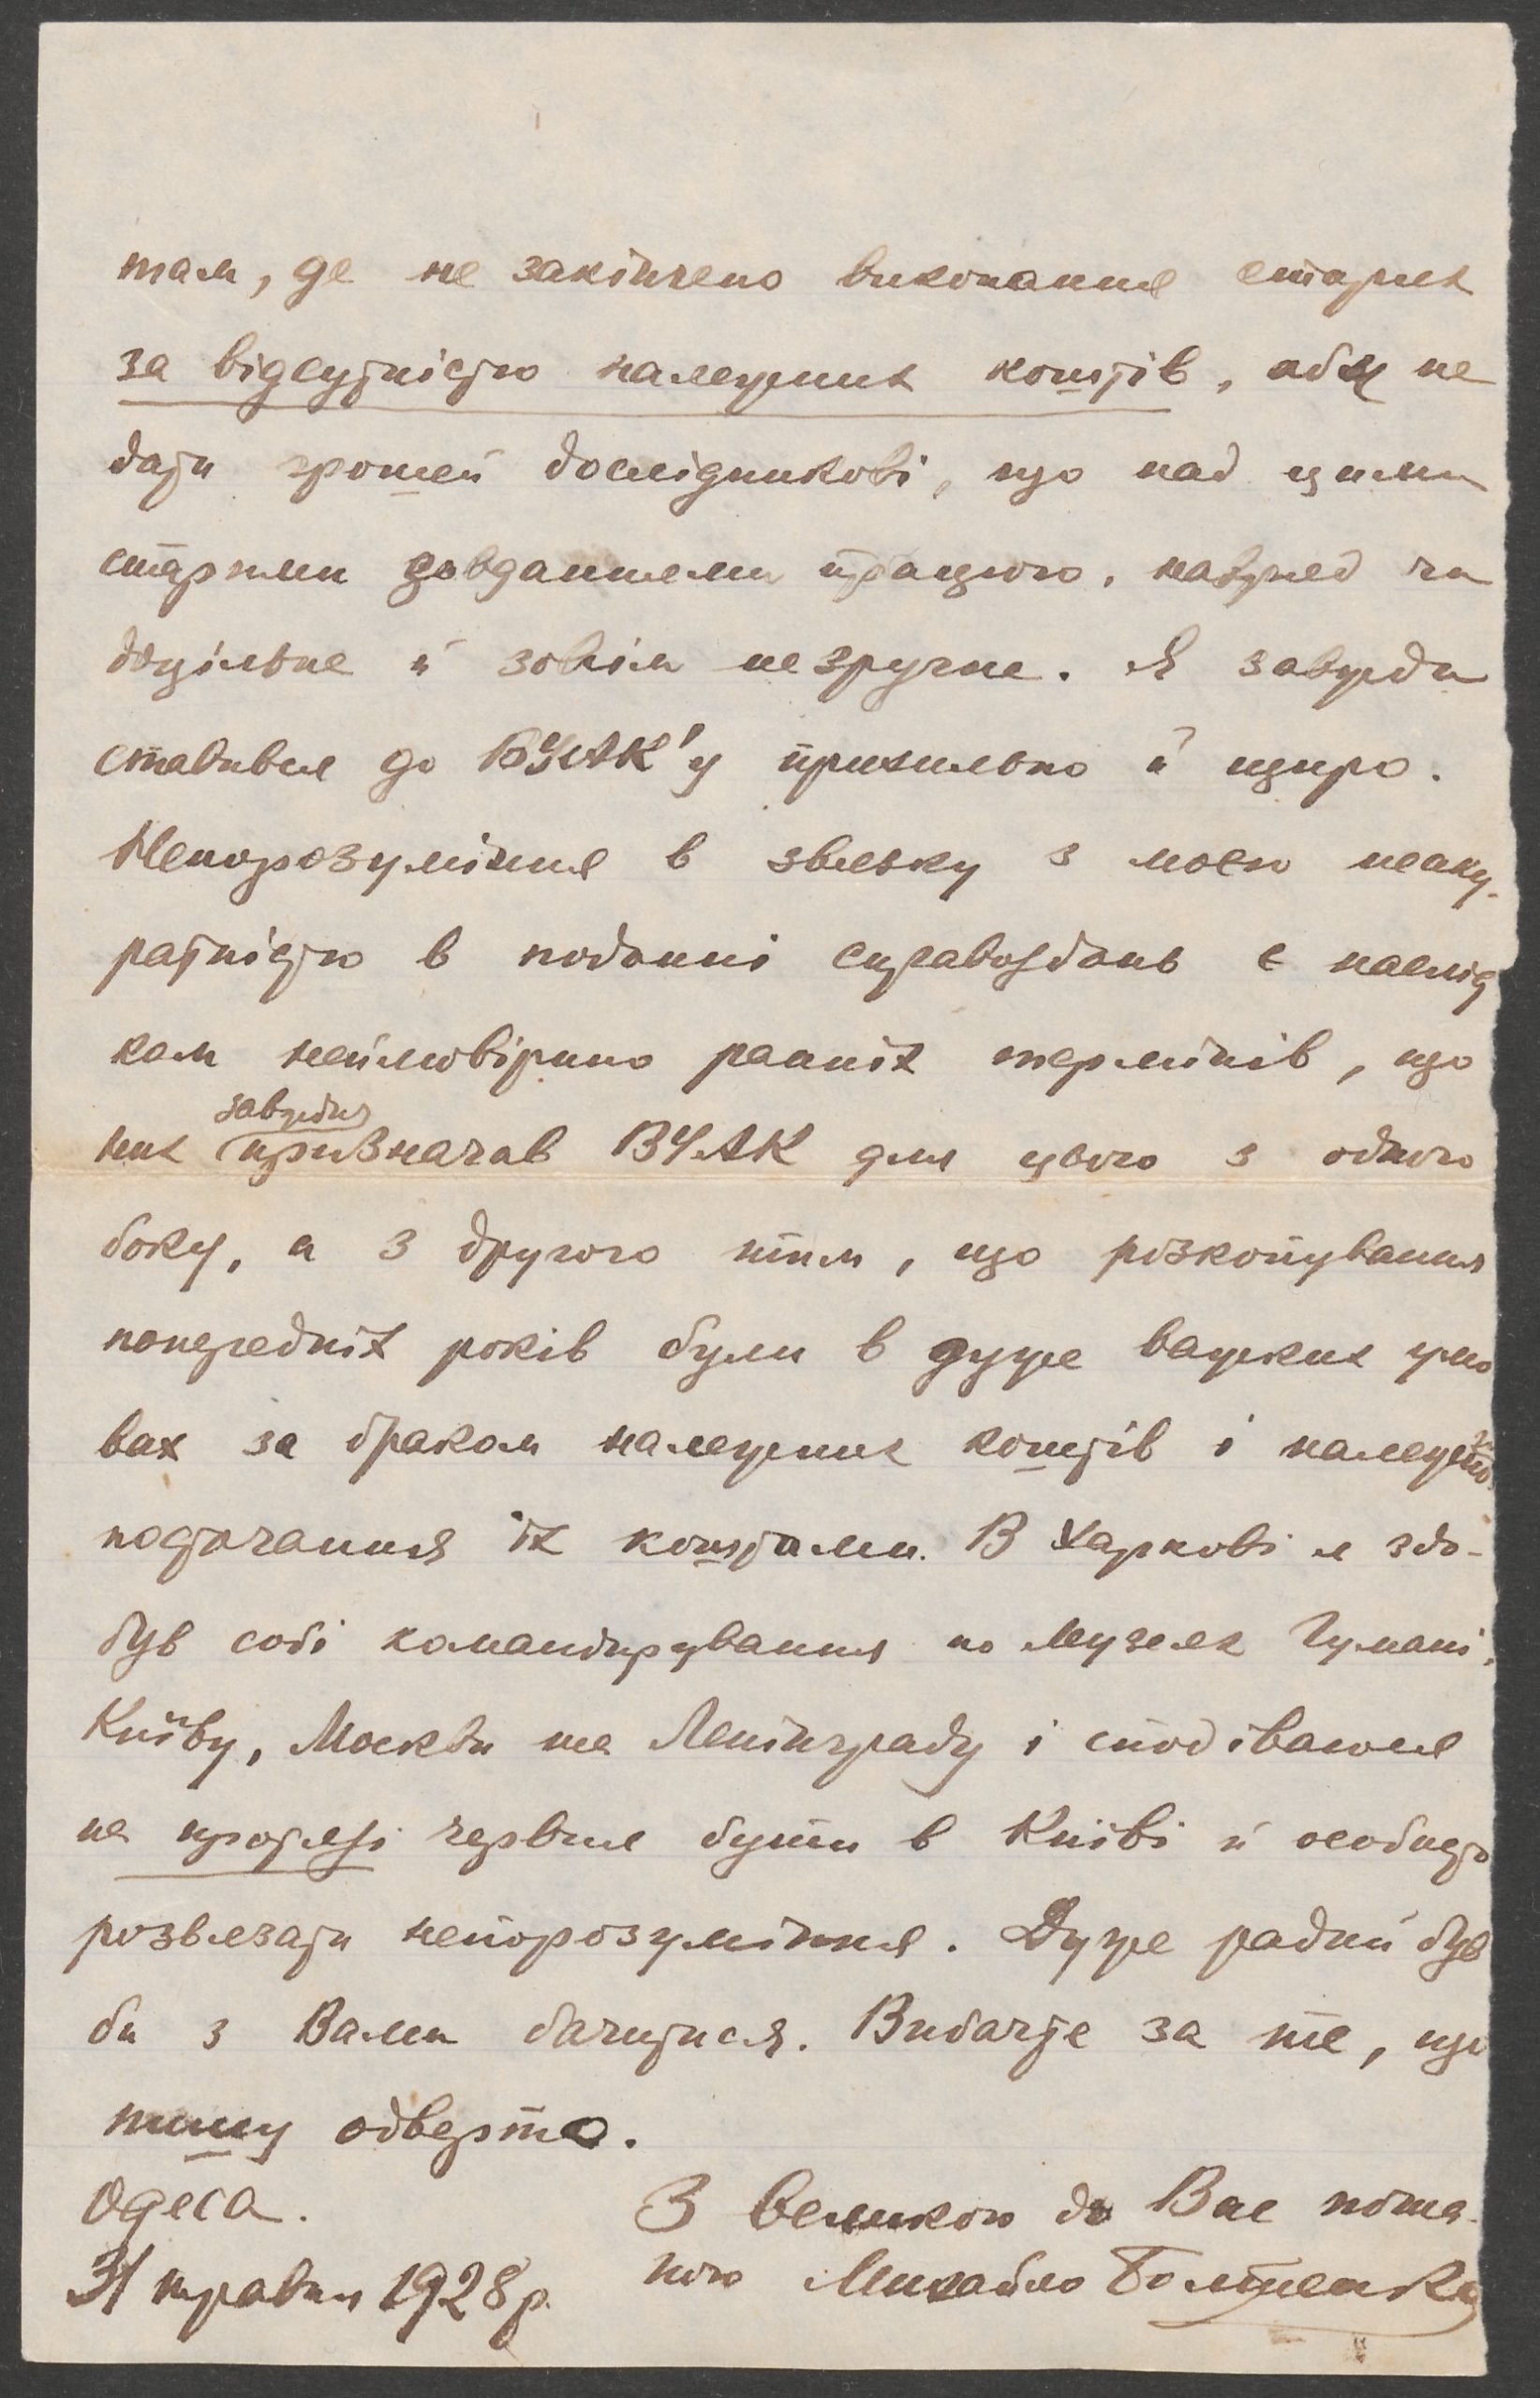 там, де не закінчено виконання старих
за відсутністю належних коштів, аби не
дати грошей дослідникові, що над цими
старими завданнями працює, навряд чи
доцільне й зовсім незручне. Я завжди
ставився до ВУАК'у прихильно й щиро.
Непорозуміння в звязку з моєю неаку-
ратністю в поданні справоздань є наслід
ком неймовірно ранніх термінів, що
завжди
них призначав ВУАК для цього з одного
боку, а з другого тим, що розкопування
попередніх років були в дуже важких умо
вах за браком належних коштів і належного
постачання їх коштами. В Харкові я здо-
був собі командирування по музеях Гумані,
Київу, Москви та Ленінграду і сподіваюся
на протязі червня бути в Київі й особисто
розвязати непорозуміння. Дуже радий був
би з Вами бачитися. Вибачте за те, що
пишу одверто.
Одеса.
31 травня 1928 р.
З великою до Вас поша-
ною Михайло Болтенко